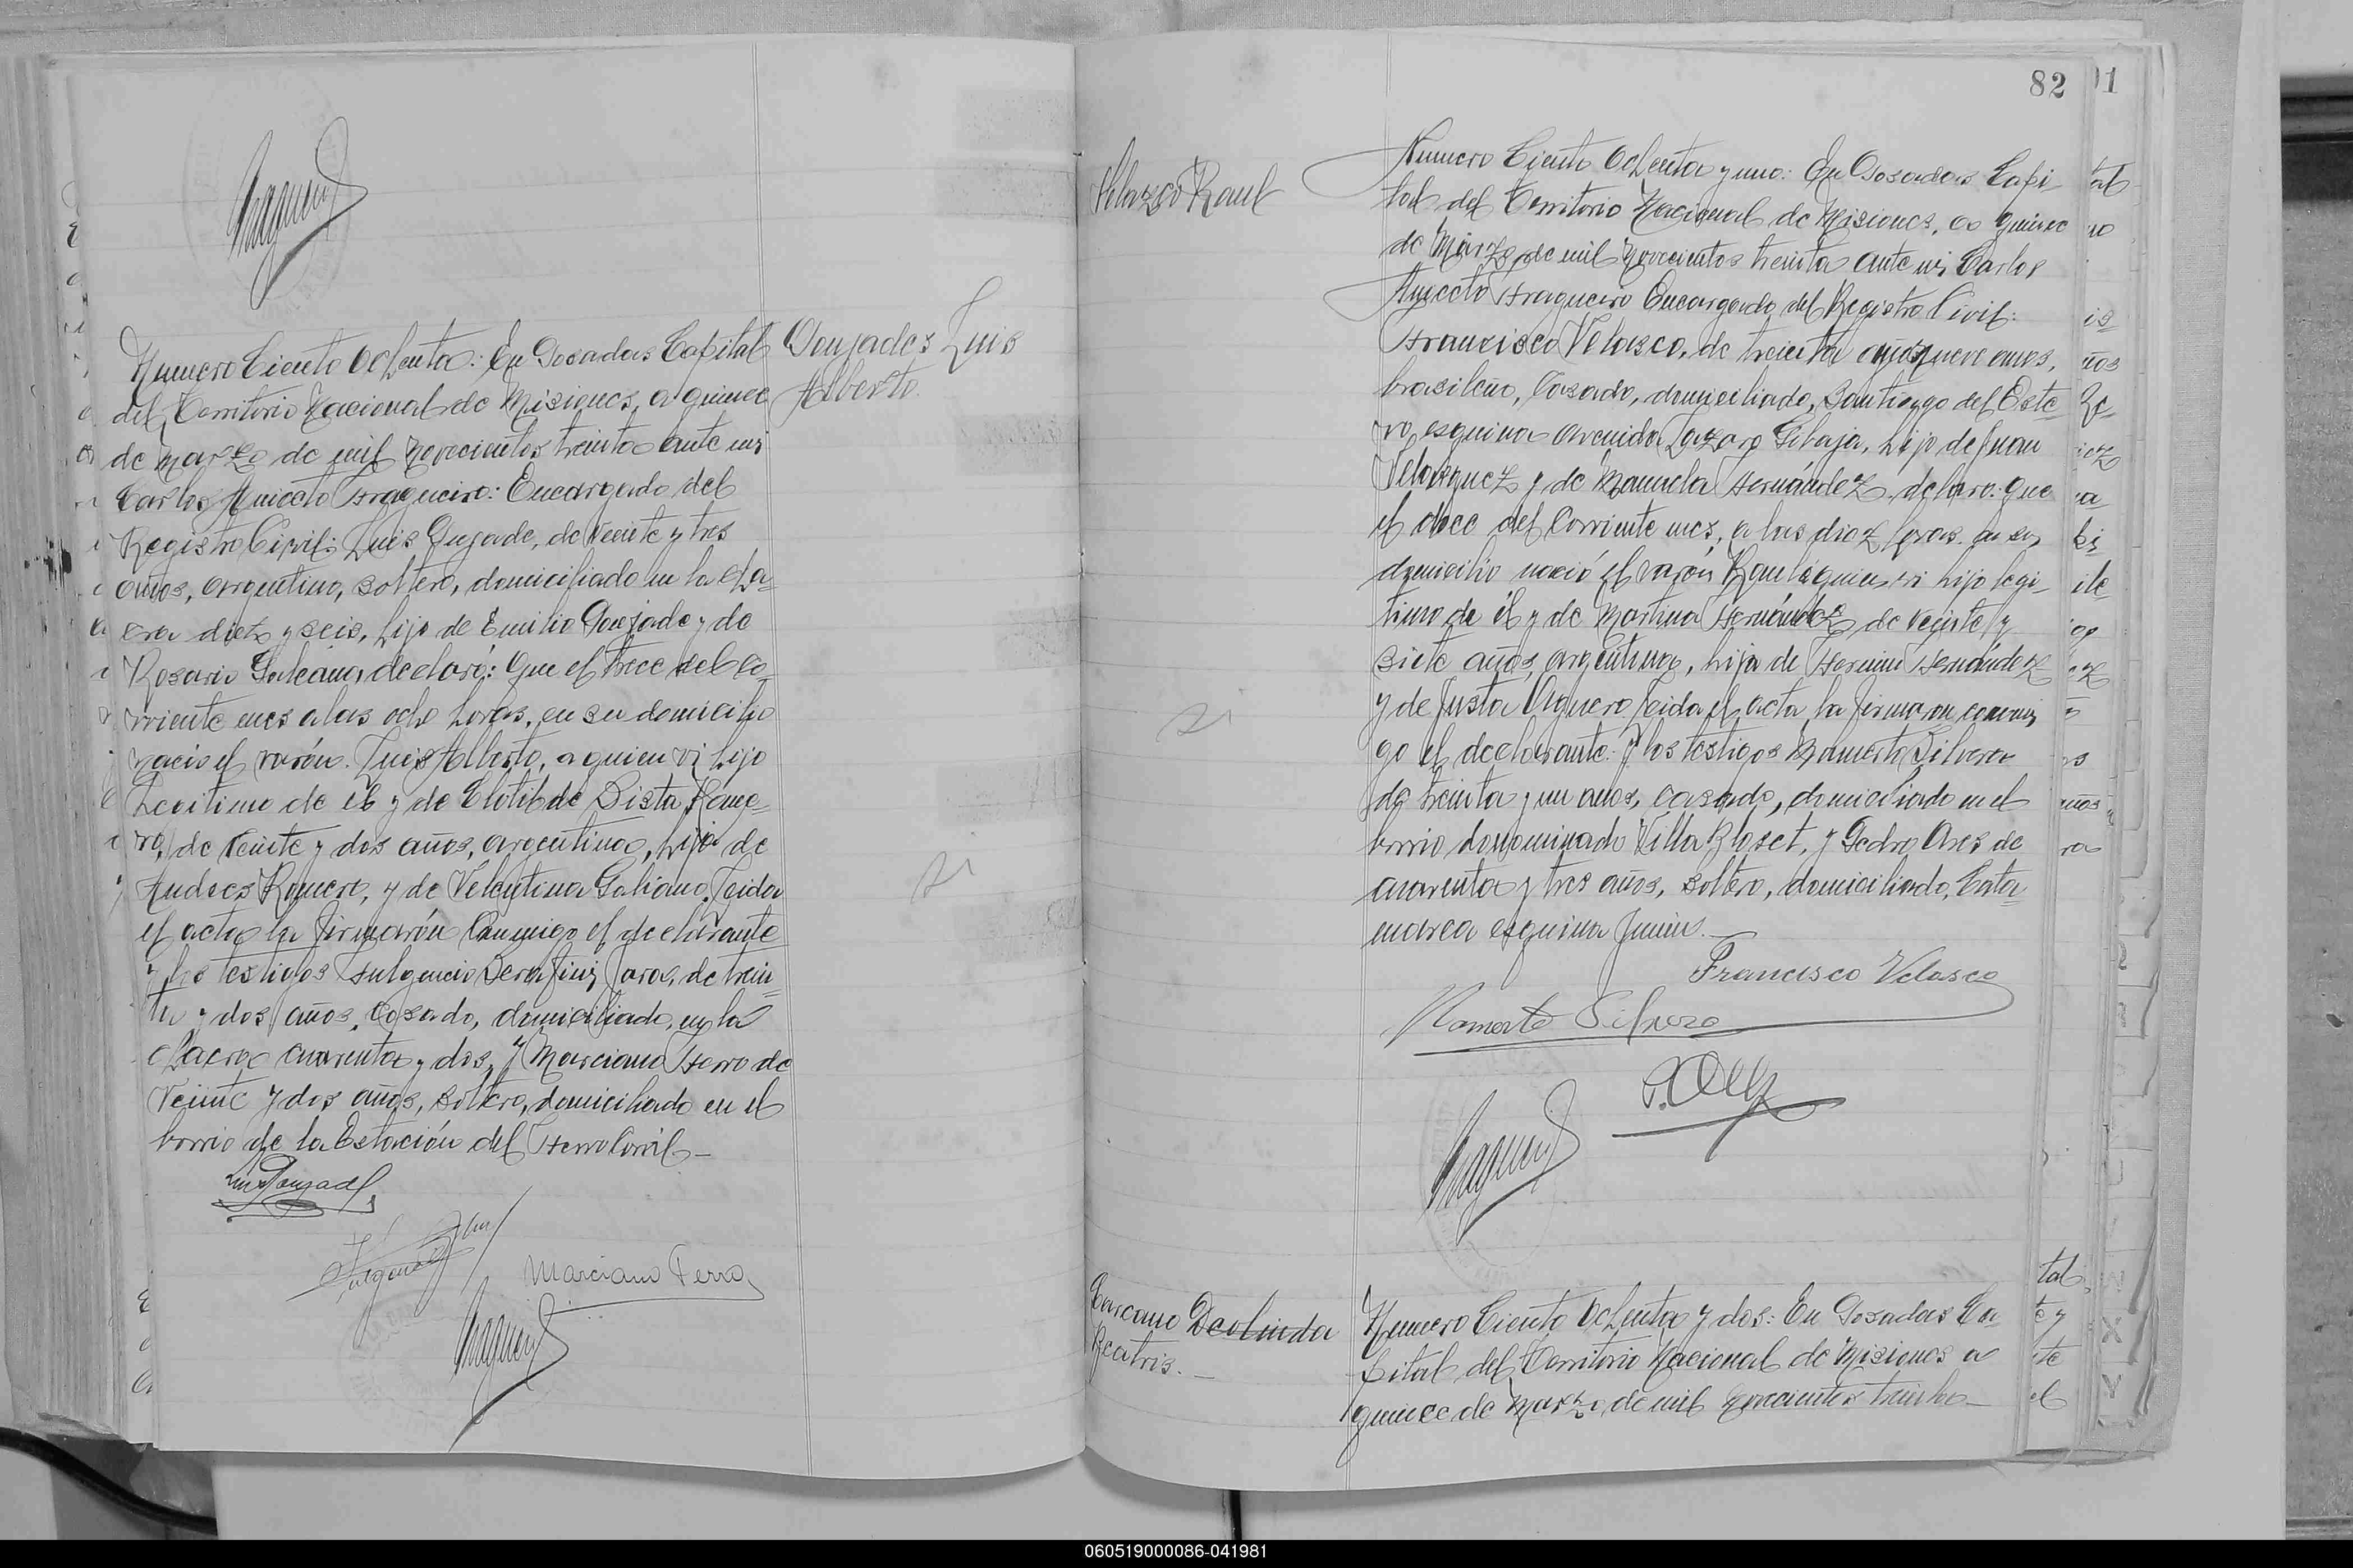 Numero Ciento Ochenta: En Posadas Capital
del Territorio Nacional de Misiones, a quince
de Marzo de mil novecientos treinta ante mi
Carlos Aniceto Fragueiro: Encargado del
Registro Civil: Luis de veinte y tres
años, argentino, soltero, domiciliado en la cha-
cra diez y seis, hijo de Emilio y de
Rosario declaró: Que el trece del co-
rriente mes a las ocho horas, en su domicilio
nació el varón Luis Alberto, a quien vi hijo
Legitimo de él y de Clotilde Sista Rome-
ro, de veinte y dos años, argentina, hija de
Andres Romero, y de Velentina Galiano. Leida
el acta la firmarón Conmigo el declarante
y los testigos Fulgencio Serafin Jara, de trein-
ta y dos años, Casado, domiciliado en la
chacra cuarenta y dos, y Marciano Ferro de
veinte y dos años, soltero, domiciliado en el
barrio de la Estación del Ferro Carril-
Luis Alberto.
Marciano Ferro
82
Velazco Raul
Numero Ciento Ochenta y uno: En Posadas Capi
tal del Territorio Nacional de Misiones, a quince
de Marzo de mil novecientos treinta ante mi Carlos
Aniceto Fragueiro Encargado del Registro Civil:
Francisco Velasco, de treinta nueve años,
brasileño, Casado, domiciliado, Santiago del Este-
ro, esquina avenida Lazaro Gibaja, hijo de Juan
Velasquez y de Manuela Hernández declaro: que
el doce del Corriente mes, a las diez horas en su
domicilio nació el varón Raul a quien vi hijo legi-
timo de él y de Martina Hernández de veinte y
siete años, argentina, hija de Hernández
y de Justa Aguero Leida el acta la firmaron conmi
go el declarante: y los testigos Mamerto Silvera
de treinta y un años, casado, domiciliado en el
barrio denominado Villa Bloset, y Pedro Ares de
cuarenta y tres años, soltero, domiciliado, Cata-
marca esquina Junin.-
Francisco Velasco
Mamerto Silvera
Carcamo Deolinda
Beatris.-
Numero Ciento Ochenta y dos: En Posadas Ca
pital del Territorio Nacional de Misiones a
quince de Marzo de mil novecientos treinta-
060519000086-041981